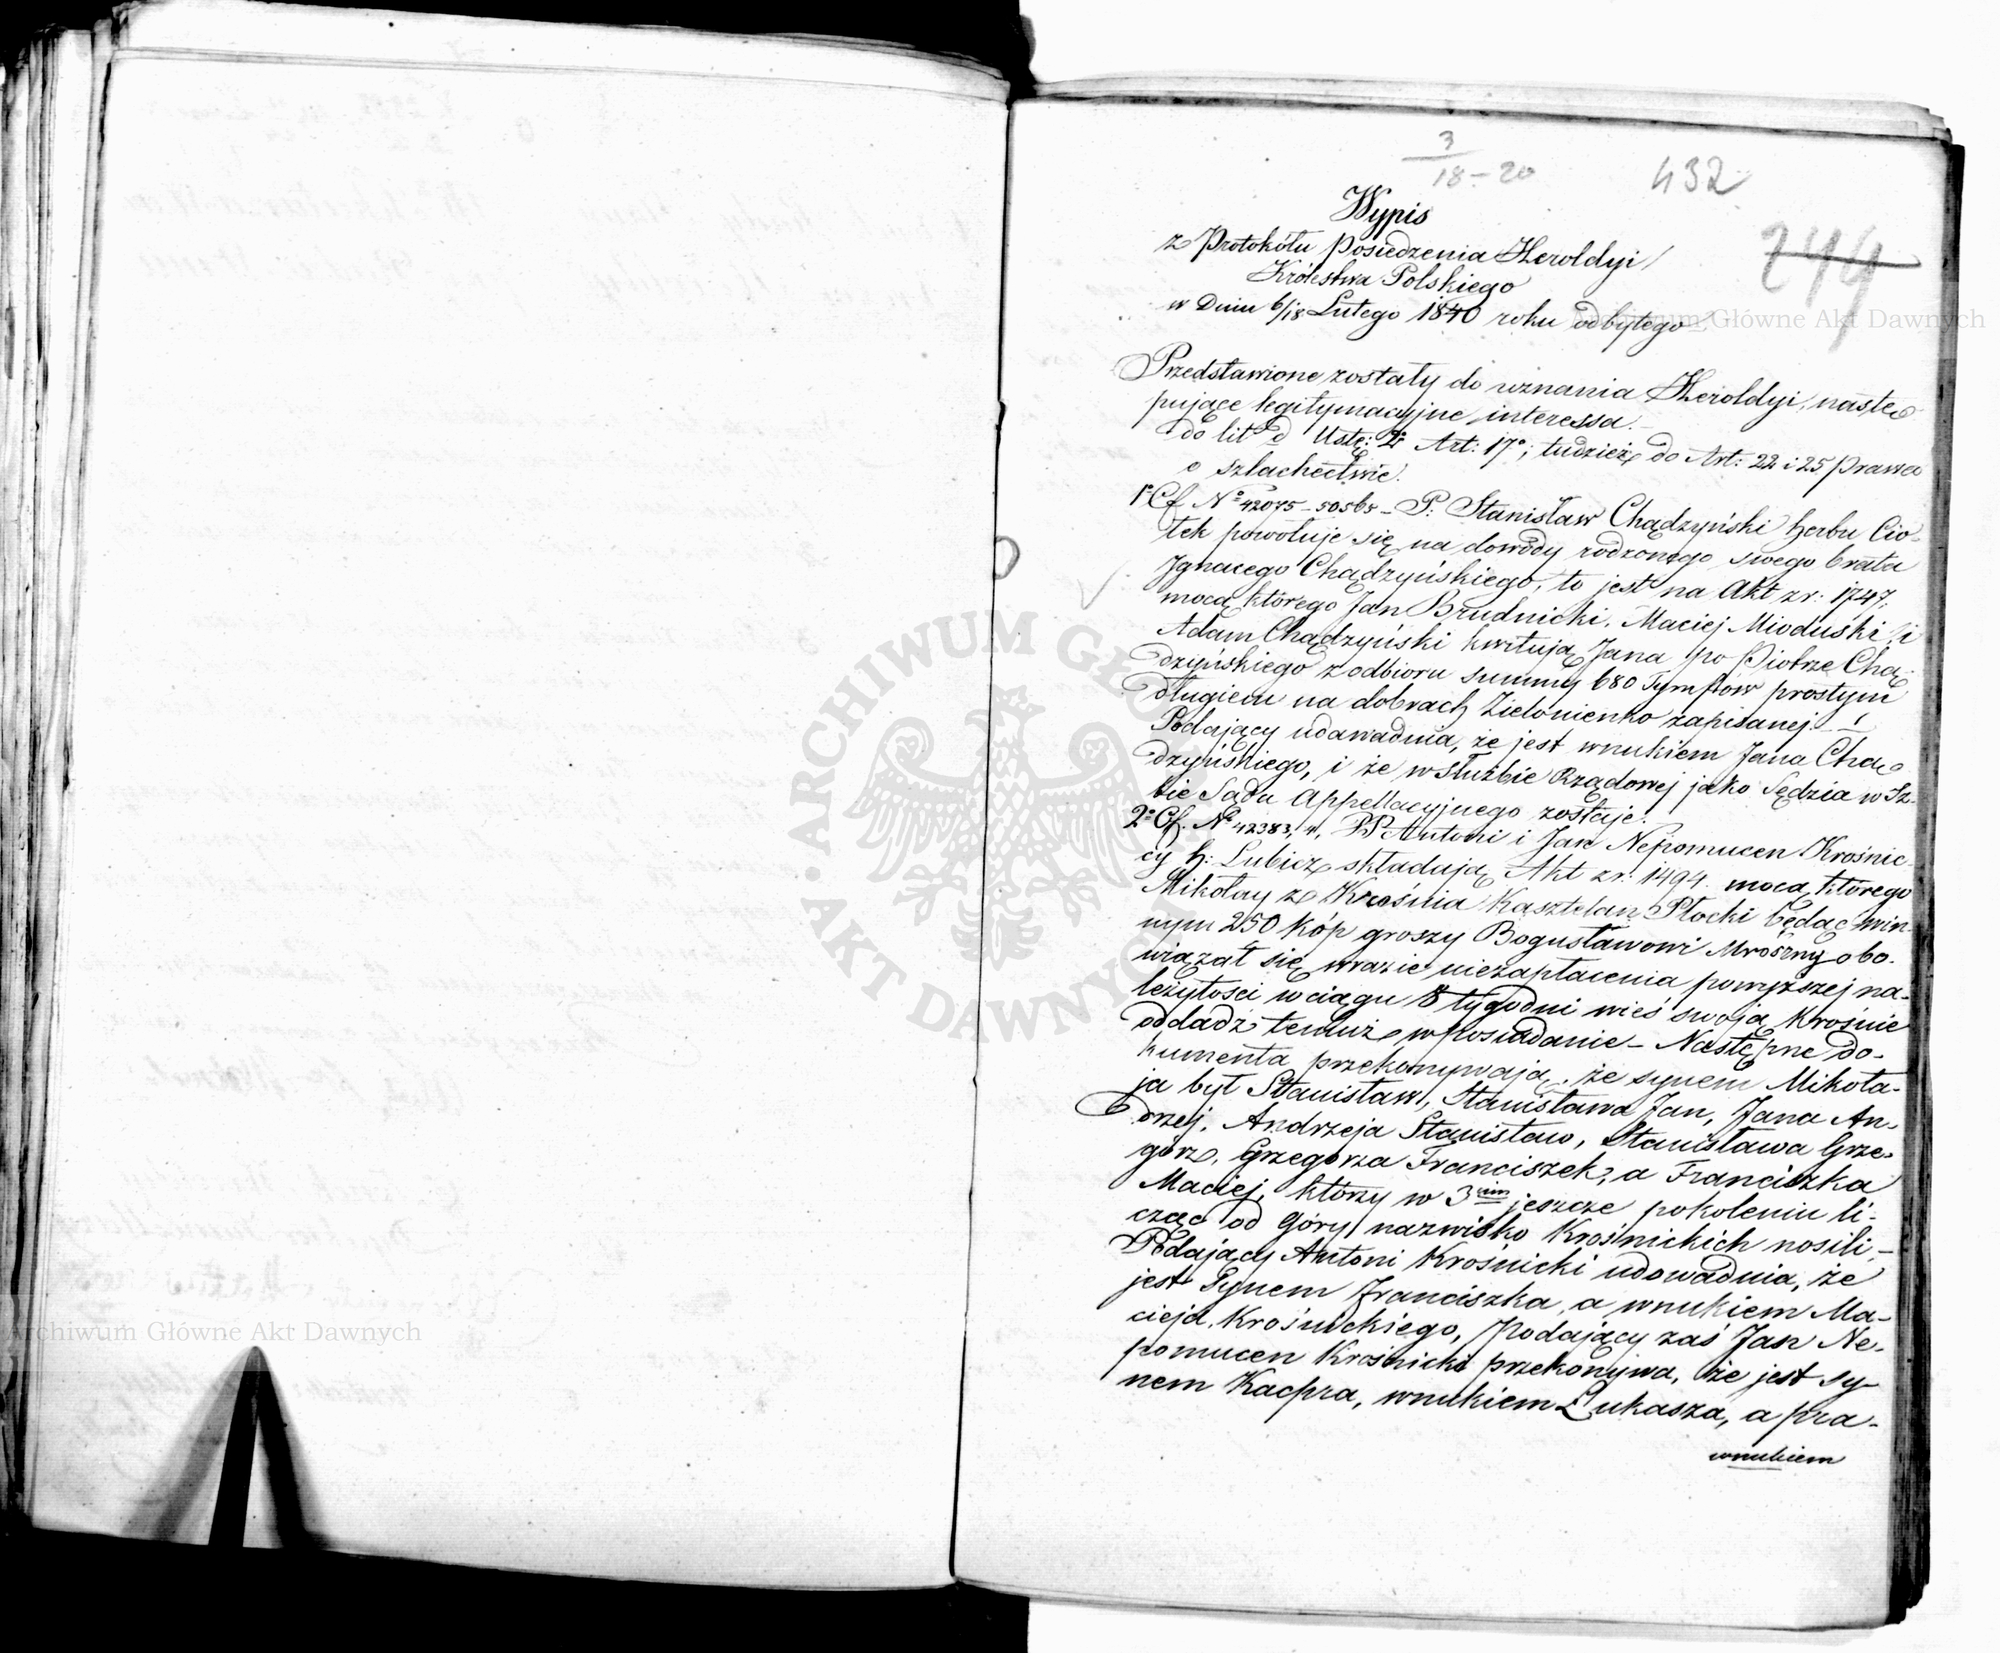 3
18-20
432
244
Wypis
z Protokółu Posiedzenia Heroldyi
Królestwa Polskiego
w Dniu 6/18 Lutego 1840 roku odbytego
Przedstawione zostały do uznania Heroldyi, nastę
pujące legitymacyjne interessa.
do lit d Ustę: 2 Art: 17°; tudzież do Art: 22 i 25 Prawa
o szlachectwie.
1° Cf. N° 42075-50565- P: Stanisław Chądzyński herbu Cio-
łek powołuje się na dowody rodzonego swego brata
Ignacego Chądzyńskiego, to jest na Akt zr: 1747,
mocą którego Jan Brudnicki, Maciej Mioduski i
Adam Chądzyński kwitują Jana po Piotrze Chą-
dzyńskiego z odbioru summy 680 Tymfów prostym
długiem na dobrach Zielonienko zapisanej.
Podający udawadnia, że jest wnukiem Jana Chą-
dzyńskiego, i że w służbie Rządowej jako Sędzia w Iz-
bie Sądu Appellacyjnego zostaje.
2° Cf. N° 42383, 4, PP. Antoni i Jan Nepomucen Krośnic
cy h: Lubicz składają Akt zr: 1494. mocą którego
Mikołay z Krośnia Kasztelan Płocki będąc win-
nym 250 kóp groszy Bogusławowi Mroźny obo-
wiązał się wrazie niezapłacenia powyższej na-
leżytości w ciągu 8 tygodni wieś swoją Krośnie
oddadź temuż w posiadanie - Następne do-
kumenta przekonywają, że synem Mikoła-
ja był Stanisław, Stanisława Jan, Jana An-
drzej, Andrzeja Stanisław, Stanisława Grze-
górz, Grzegorza Franciszek, a Franciszka
Maciej, którzy w 3cim jeszcze pokoleniu li-
cząc od góry nazwisko Krośnickich nosili,-
Podający Antoni Krośnicki udowadnia, że
jest Synem Franciszka, a wnukiem Ma-
cieja, Krośnickiego, Podający zaś Jan Ne-
pomucen Krośnicki przekonywa, że jest sy-
nem Kacpra, wnukiem Łukasza, a pra-
wnukiem
Archiwum Główne Akt Dawnych
Archiwum Główne Akt Dawnych